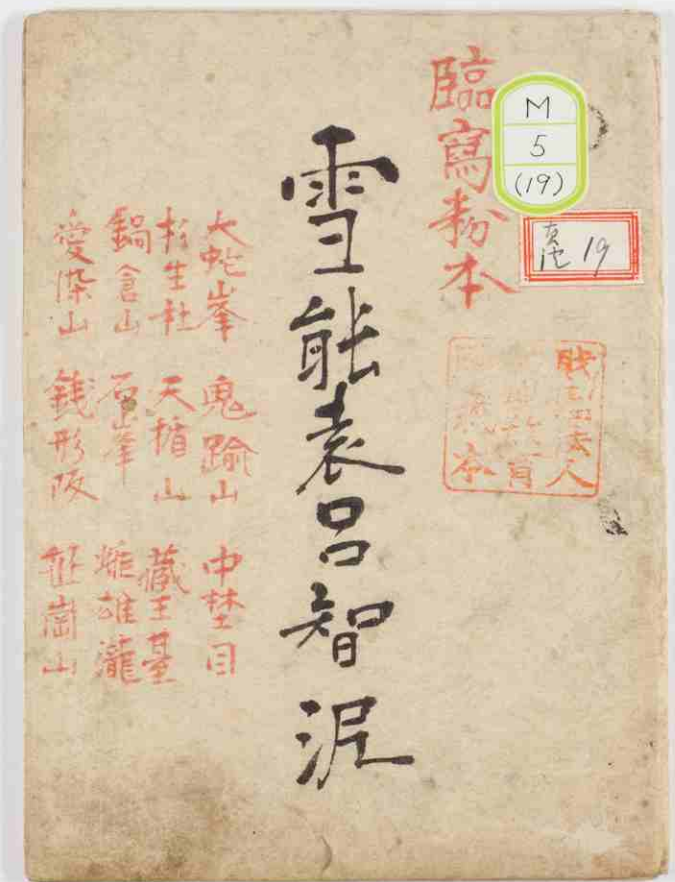 臨寫粉本
M
5
(19)
19
雪能袁呂智泥
大蛇峯 鬼踰山 中埜目
杉生社 天楯山 藏王臺
鍋倉山 石峯 雌雄瀧
愛染山 銭形阪 崗山